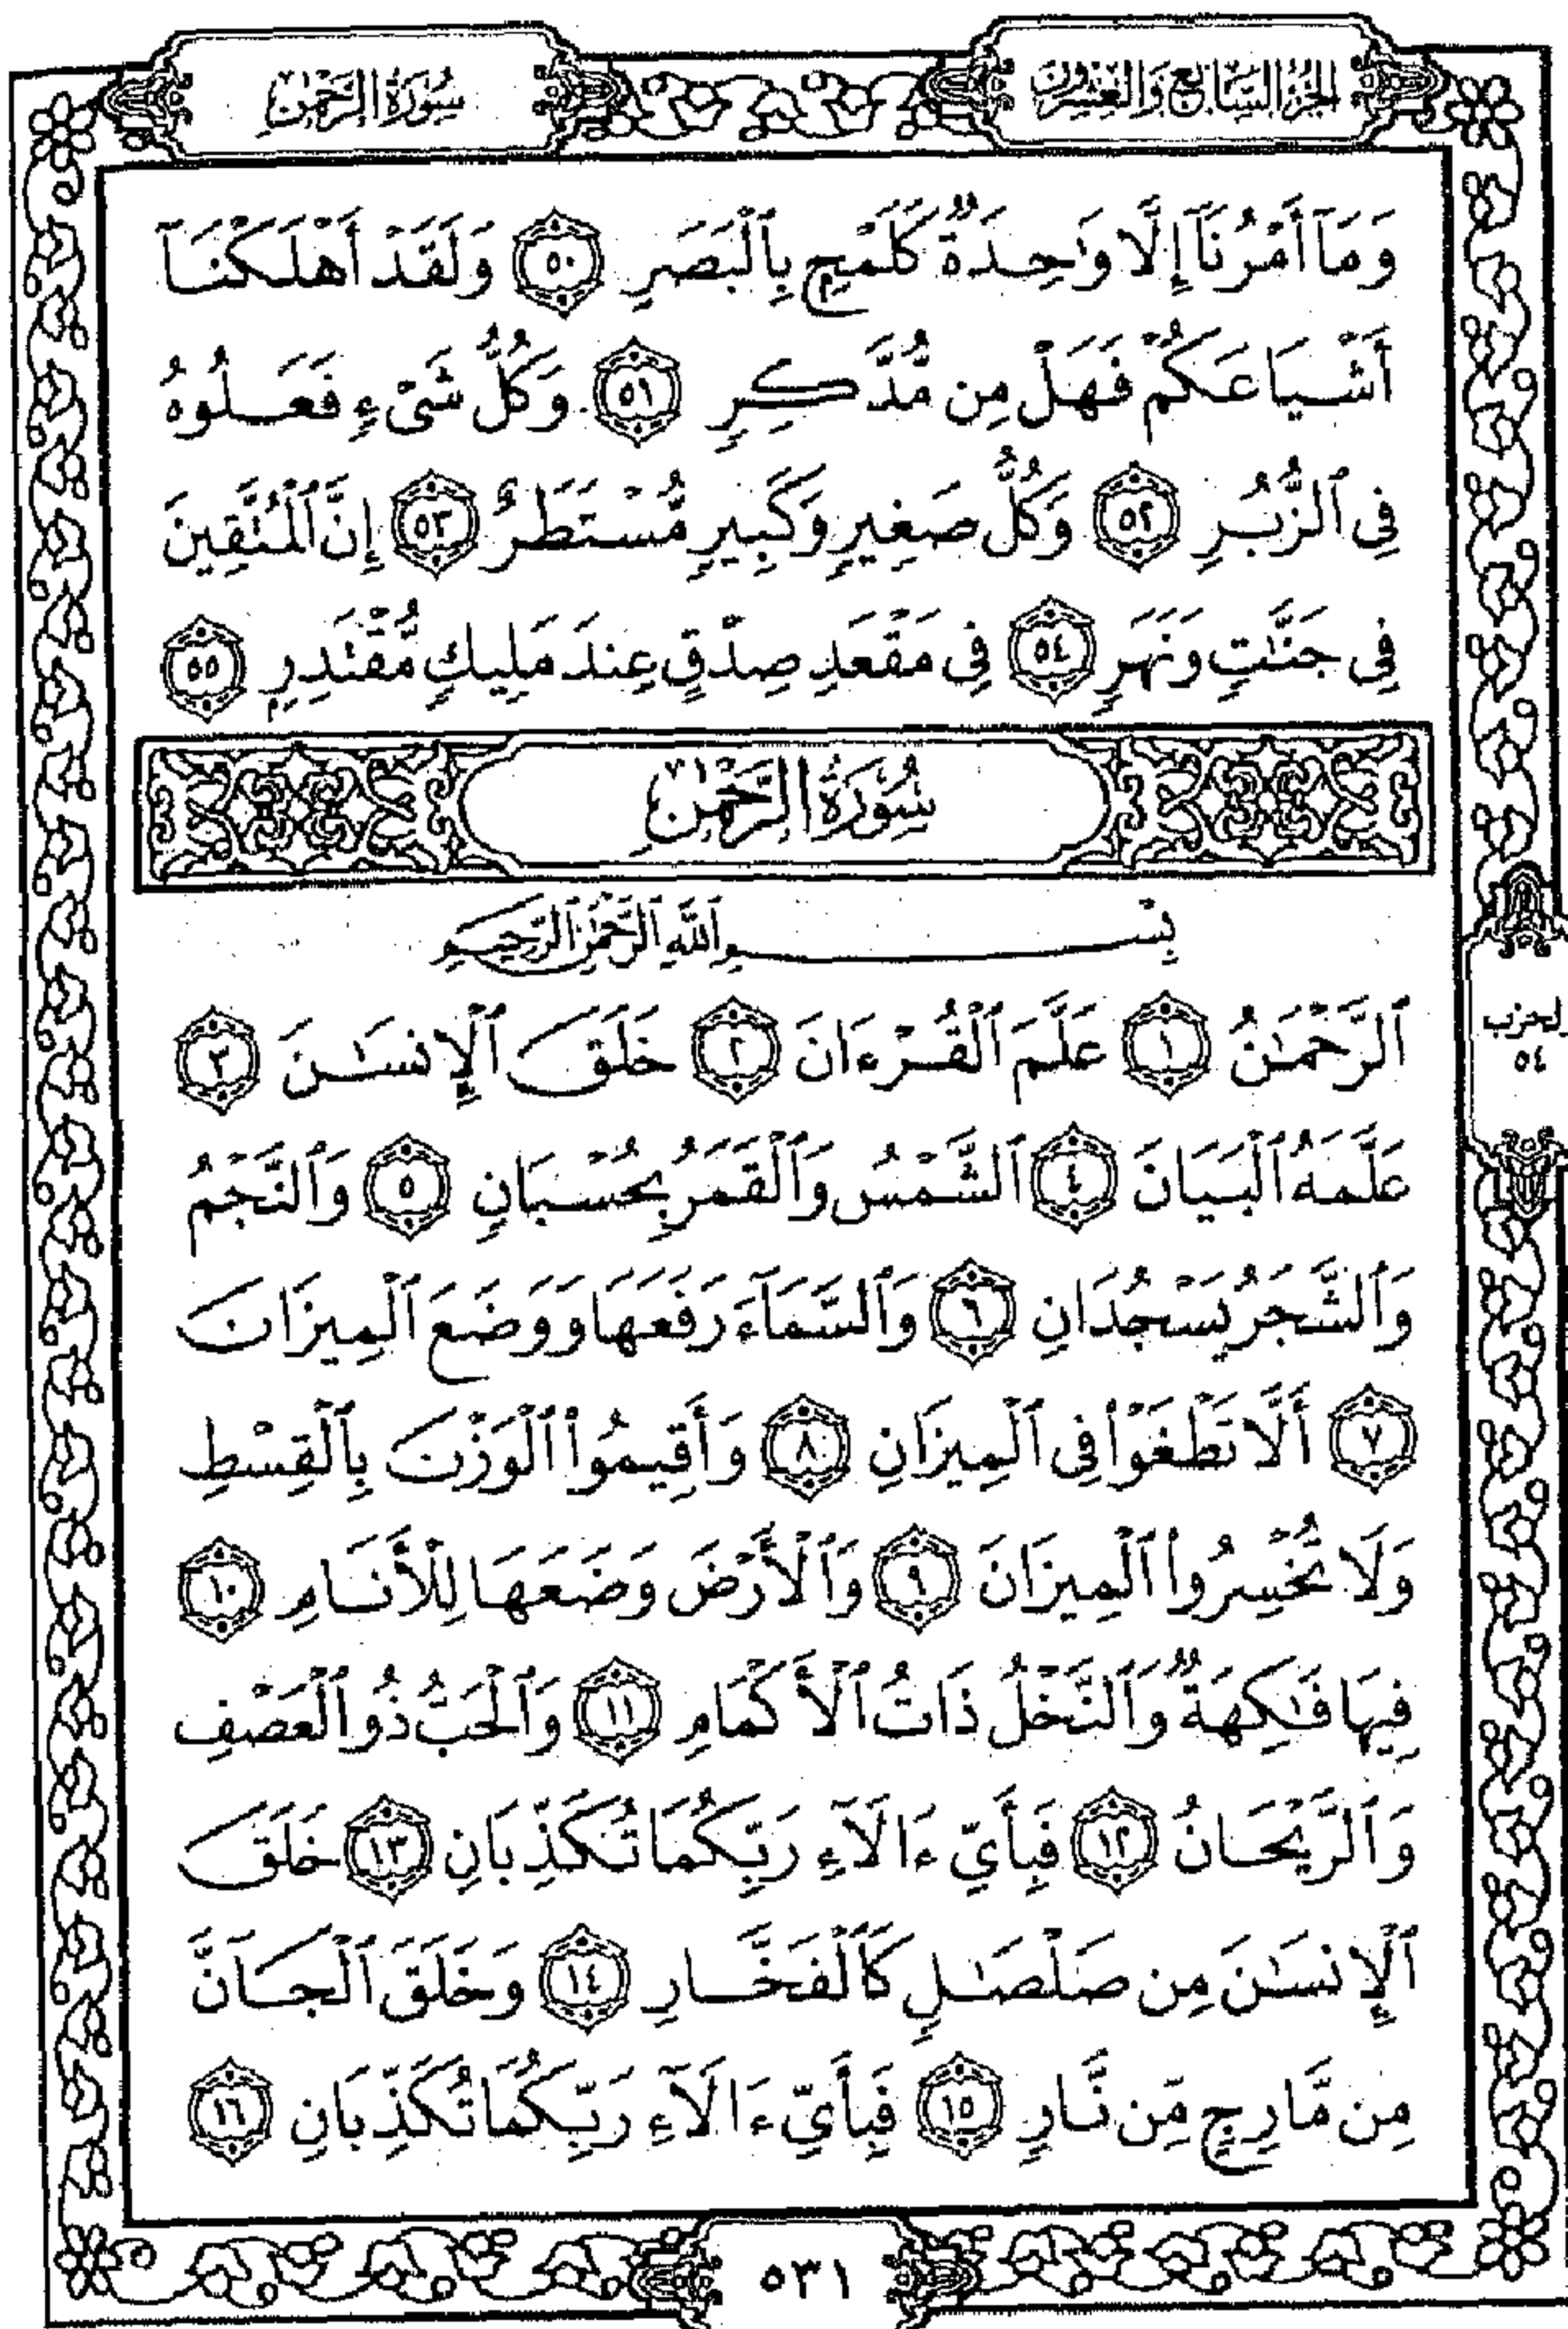 الجزء السابع والعشرون
سورة الرحمن
وَمَآ أَمْرُنَآ إِلَّا وَٰحِدَةٌ كَلَمْحٍۭ بِٱلْبَصَرِ ٥٠ وَلَقَدْ أَهْلَكْنَآ
أَشْيَاعَكُمْ فَهَلْ مِن مُّدَّكِرٍ ٥١ وَكُلُّ شَىْءٍ فَعَلُوهُ
فِى ٱلزُّبُرِ ٥٢ وَكُلُّ صَغِيرٍ وَكَبِيرٍ مُّسْتَطَرٌ ٥٣ إِنَّ ٱلْمُتَّقِينَ
فِى جَنَّٰتٍ وَنَهَرٍ ٥٤ فِى مَقْعَدِ صِدْقٍ عِندَ مَلِيكٍ مُّقْتَدِرٍۭ ٥٥
سُورَةُ الرَّحْمَٰنِ
بِسْمِ ٱللَّهِ ٱلرَّحْمَٰنِ ٱلرَّحِيمِ
ٱلرَّحْمَٰنُ ١ عَلَّمَ ٱلْقُرْءَانَ ٢ خَلَقَ ٱلْإِنسَٰنَ ٣
الحزب
٥٤
عَلَّمَهُ ٱلْبَيَانَ ٤ ٱلشَّمْسُ وَٱلْقَمَرُ بِحُسْبَانٍ ٥ وَٱلنَّجْمُ
وَٱلشَّجَرُ يَسْجُدَانِ ٦ وَٱلسَّمَآءَ رَفَعَهَا وَوَضَعَ ٱلْمِيزَانَ
٧ أَلَّا تَطْغَوْا۟ فِى ٱلْمِيزَانِ ٨ وَأَقِيمُوا۟ ٱلْوَزْنَ بِٱلْقِسْطِ
وَلَا تُخْسِرُوا۟ ٱلْمِيزَانَ ٩ وَٱلْأَرْضَ وَضَعَهَا لِلْأَنَامِ ١٠
فِيهَا فَٰكِهَةٌ وَٱلنَّخْلُ ذَاتُ ٱلْأَكْمَامِ ١١ وَٱلْحَبُّ ذُو ٱلْعَصْفِ
وَٱلرَّيْحَانُ ١٢ فَبِأَىِّ ءَالَآءِ رَبِّكُمَا تُكَذِّبَانِ ١٣ خَلَقَ
ٱلْإِنسَٰنَ مِن صَلْصَٰلٍ كَٱلْفَخَّارِ ١٤ وَخَلَقَ ٱلْجَآنَّ
مِن مَّارِجٍ مِّن نَّارٍ ١٥ فَبِأَىِّ ءَالَآءِ رَبِّكُمَا تُكَذِّبَانِ ١٦
٥٣١